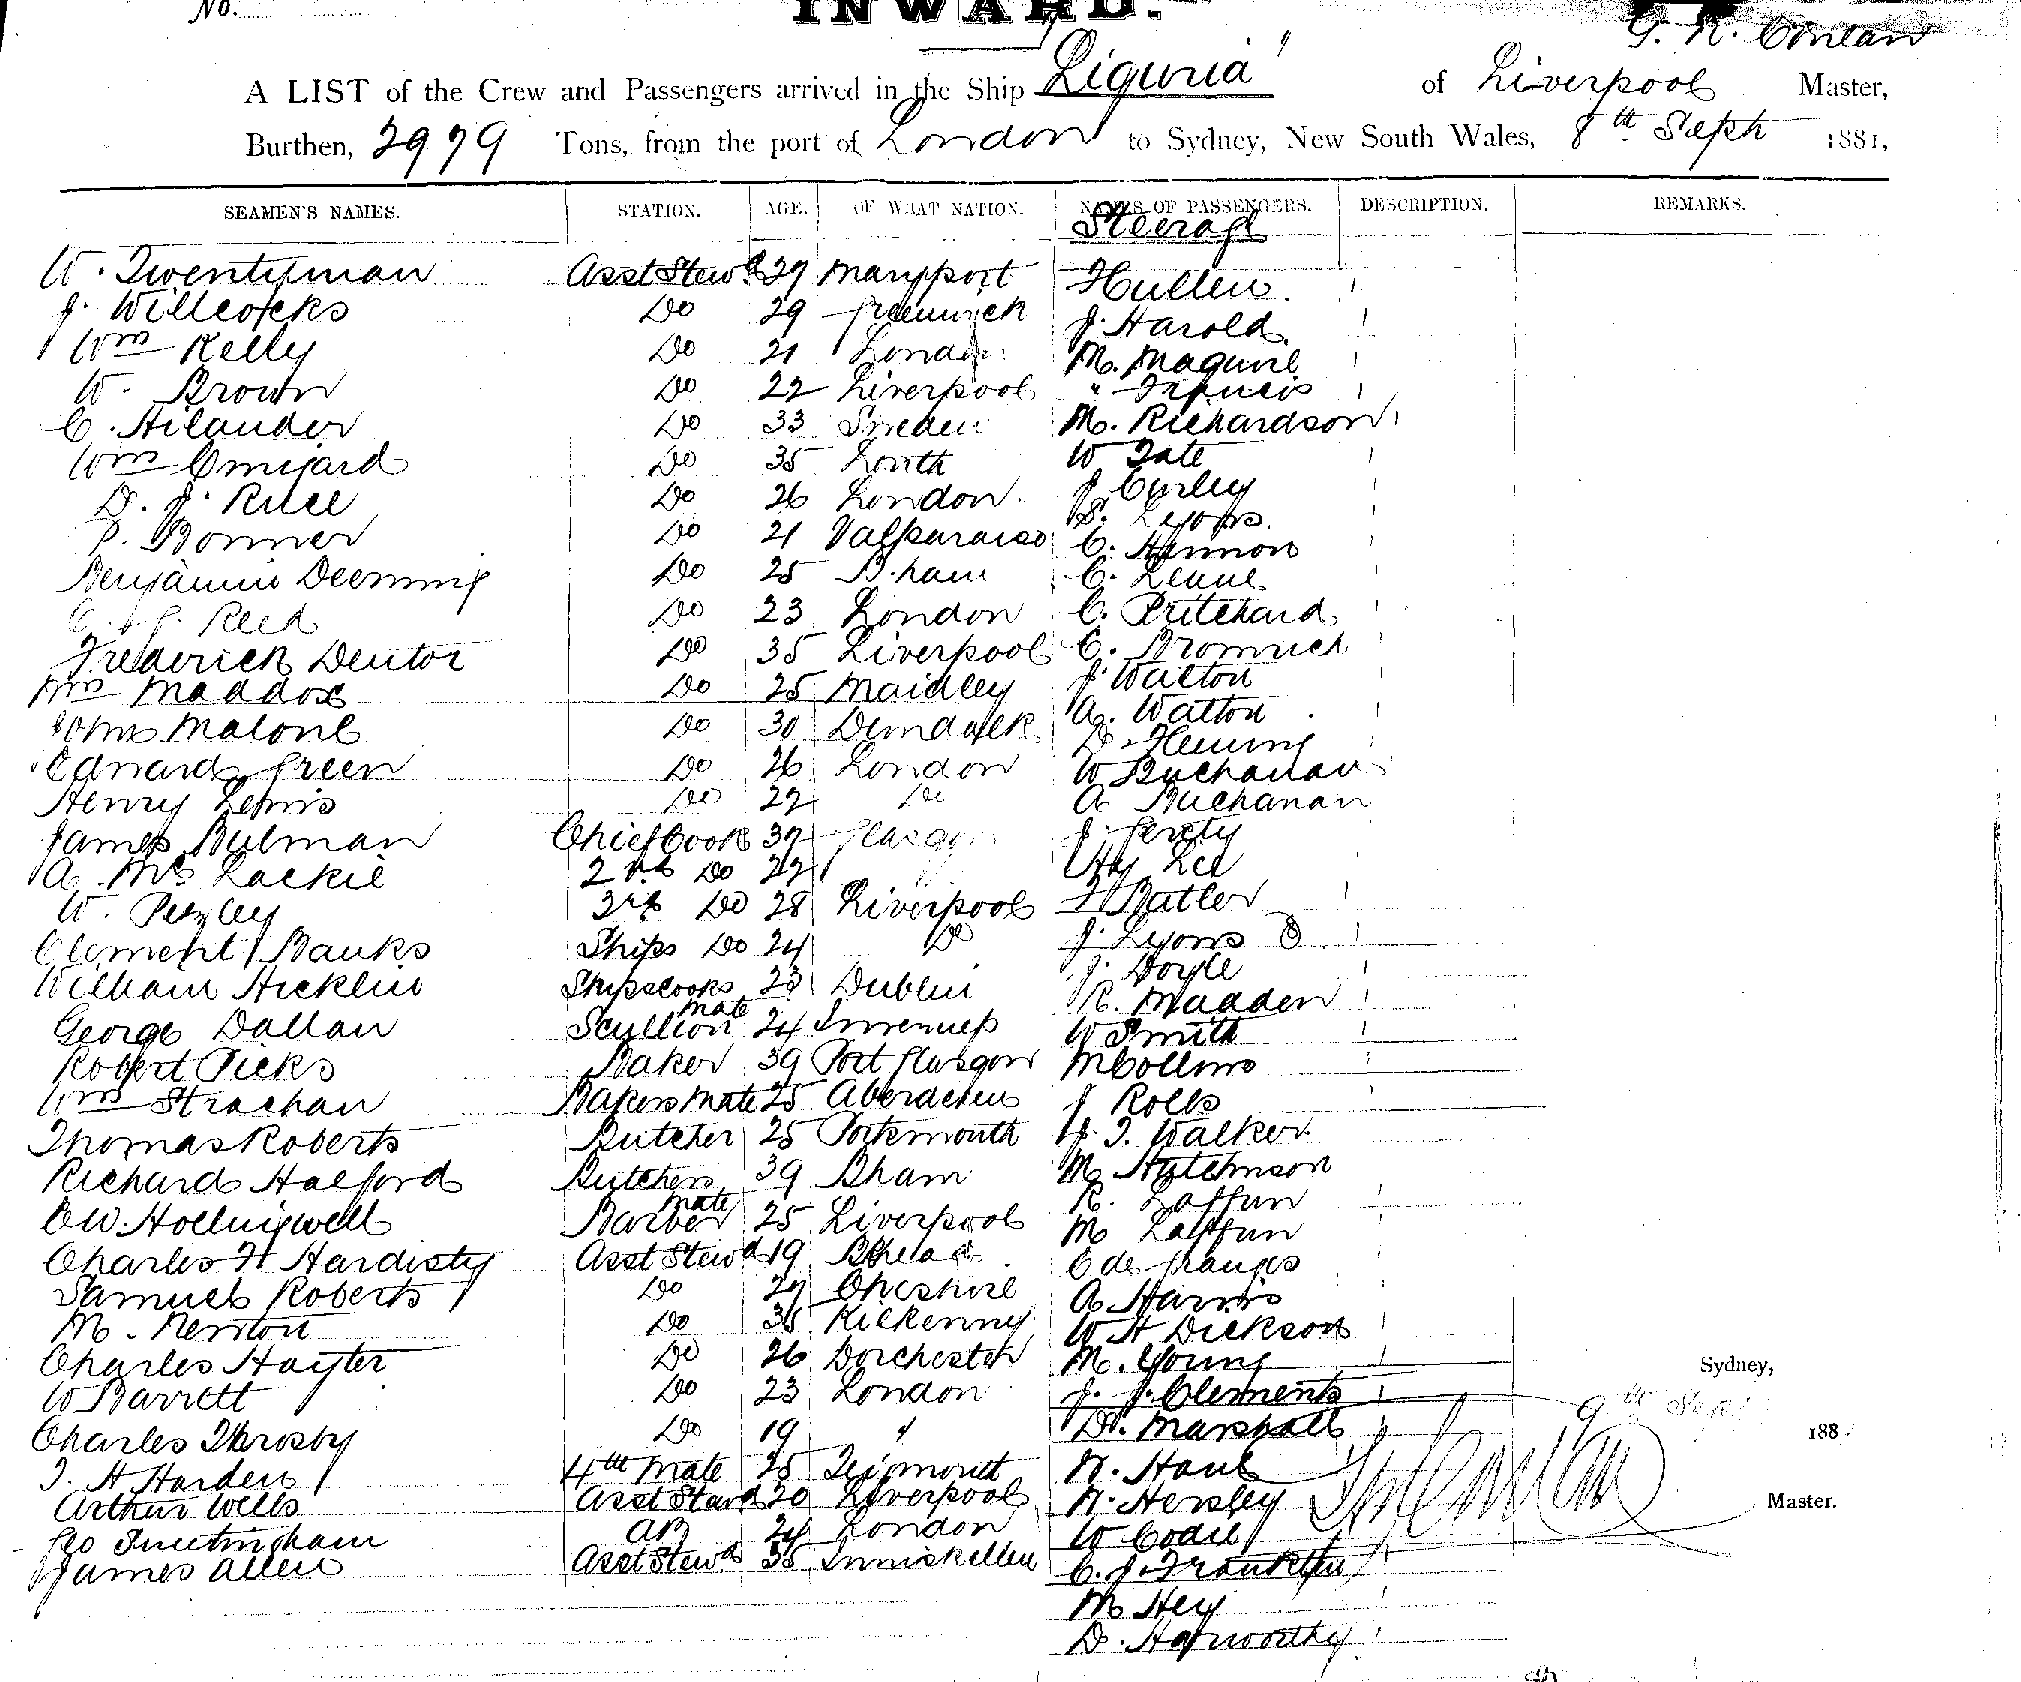 No.
INWARD.
G. N. Conlan
A LIST of the Crew and Passengers arrived in the Ship "Liguria" of Liverpool Master,
Burthen, 2979 Tons, from the port of London to Sydney, New South Wales, 8th Sept 1881,
SEAMEN'S NAMES. STATION. AGE. OF WHAT NATION. NAMES OF PASSENGERS. DESCRIPTION. REMARKS.
Steerage
W. Twentyman Asst Stewd 27 Maryport Hullen.
J. Willcocks Do 29 Greenwich J. Harold
Wm Kelly Do 21 London M. Maguire
W. Brown Do 22 Liverpool " Francis
C. Hilander Do 33 Sweden M. Richardson
Wm Do 35 Louth W Tate
D. J. Rice Do 26 London J Curley
P. Bonner Do 21 Valparaiso S. Lyons.
Benjamin Deeming Do 25 B.ham C. Hannon
C. J. Reed Do 23 London C. Leane
Frederick Denton Do 35 Liverpool C. Pritchard
Wm Maddox Do 25 Maidley C. Bromwich
John Malone Do 30 Dundalk J. Walton
Edward Green Do 26 London A. Watton
Henry Lewis Do 22 Do D. Fleming
James Bulman Chief Cook 32 Glasgow W Buchanan
A. Mc Lackie 2nd Do 22 A Buchanan
W. Pezley 3rd Do 28 Liverpool J. Gerety
Clement Banks Ships Do 24 Do Hy Lee
William Hicklin Ships cooks mate 23 Dublin F Butler
George Dallan Scullion 24 Inverness J. Lyons
Robert Picks Baker 39 Port Glasgow J. Doyle
Wm Strachan Bakers Mate 25 Aberdeen R. Madden
Thomas Roberts Butcher 25 Portsmouth W Smith
Richard Halford Butchers mate 39 Bham M Collins
C W. Hollingwell Barber 25 Liverpool J Rolls
Charles H Hardisty Asst Stewd 19 Bhead J. T. Walker
Samuel Roberts Do 27 Cheshire M Hutchinson
M. Newton Do 35 Kilkenny R. Laffan
Charles Hayter Do 26 Dorchester M Laffan
W Barrett Do 23 London C de Granges
Charles Throsby Do 19 " A. Harris
T. H Harden 4th Mate 25 Teignmouth W H Dickson
Arthur Wells Asst Steward 20 Liverpool M. Young
Geo Tuettingham AB 24 London J. J. Clements
James Allen Asst Stewd 35 Inniskellen D. Marshall
N. Haul
N. Hersley
W Codie
C. J. Franklin
M Hey
D. Hayworthy
Sydney,
9th Sept 188
Master.